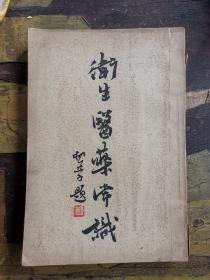 衛生醫藥常識